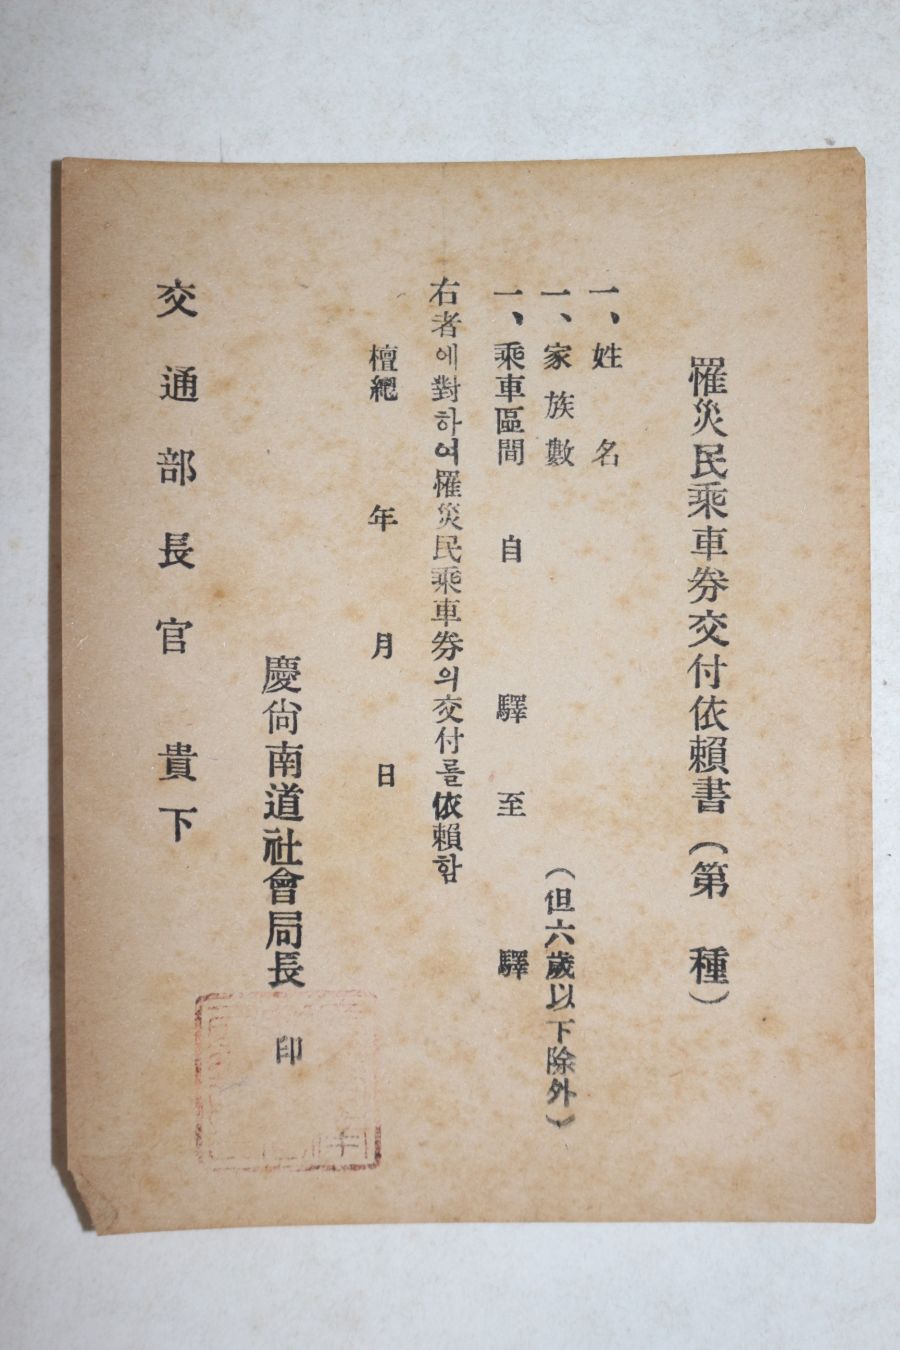 罹災民乘車券交付依賴書(第 種)
一、姓 名
一、家族數 (但六歲以下除外)
一、乘車區間 自 驛 至 驛
右者에對하여罹災民乘車券의交付를依賴함
檀紀 年 月 日
慶尙南道社會局長 印
交通部長官 貴下